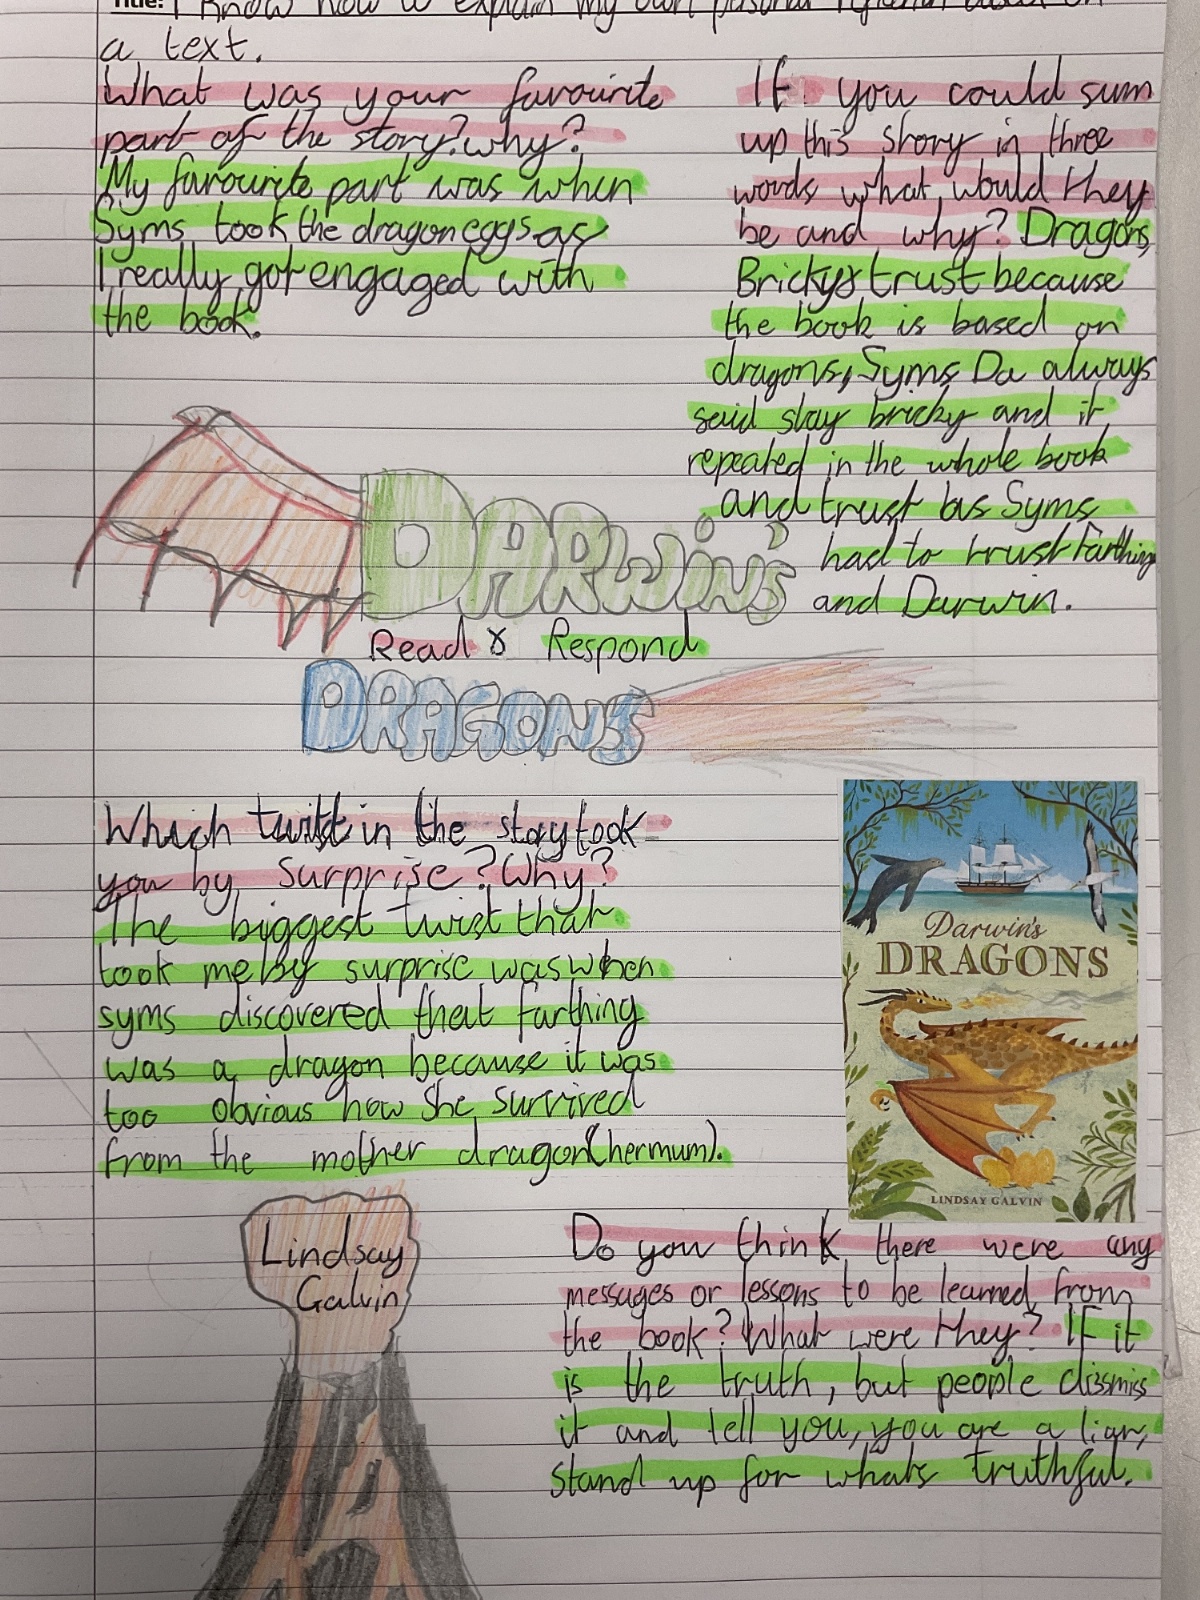 Title: I know how to explain my own
a text.
What was your favourite
part of the story? why?
My favourite part was when
Syms took the dragon eggs as
I really got engaged with
the book.
If you could sum
up this story in three
words what would they
be and why? Dragons,
Bricky & trust because
the book is based on
dragons, Syms Da always
said stay bricky and it
repeated in the whole book
and trust bas Syms
had to trust Farthing
and Darwin.
DARWIN'S
Read & Respond
DRAGONS
Which twist in the story took
you by surprise? Why?
The biggest twist that
took me by surprise was when
syms discovered that farthing
was a dragon because it was
too obvious how she survived
from the mother dragon (her mum).
Darwin's
DRAGONS
LINDSAY GALVIN
Lindsay
Galvin
Do you think there were any
messages or lessons to be learned from
the book? What were they? If it
is the truth, but people dismiss
it and tell you, you are a liar,
stand up for whats truthful.